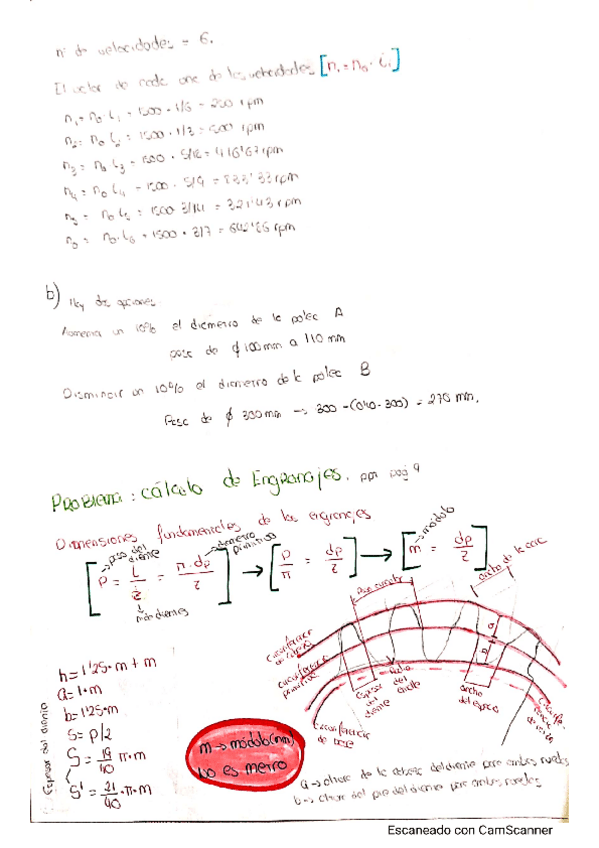 nº de velocidades = 6.
El valor de cada una de las velocidades [n₁ = n₀ · i₁]
n₁ = n₀ · i₁ = 1500 · 1/6 = 250 rpm
n₂ = n₀ i₂ = 1500 · 1/3 = 500 rpm
n₃ = n₀ i₃ = 1500 · 5/18 = 416'67 rpm
n₄ = n₀ i₄ = 1500 · 5/9 = 833'33 rpm
n₅ = n₀ i₅ = 1500 3/14 = 321'43 rpm
n₆ = n₀ · i₆ = 1500 · 3/7 = 642'86 rpm
b) Hay dos opciones
Aumenta un 10% el diametro de la polea A
pasa de ϕ 100 mm a 110 mm
Disminuir un 10% el diametro de la polea B
Pasa de ϕ 300 mm → 300 - (0'10 · 300) = 270 mm.
PROBLEMA: cálculo de Engranajes. pag 9
Dimensiones fundamentales de los engranajes
→ paso del diente
→ diametro primitivo
→ módulo
[P = L/z = π · dp/z] → [p/π = dp/z] → [m = dp/z]
↓ nº de dientes
Paso circular
ancho de la cara
circunferencia primitiva
Espesor del diente
ancho del hueco
Circunferencia de base
a
b
h = 1'25 · m + m
a = 1 · m
b = 1'25 · m
S = p/2
S = 19/40 π · m
S' = 21/40 · π · m
Espesor del diente
m → módulo (mm)
NO es metro
a → altura de la cabeza del diente para ambas ruedas
b → altura del pie del diente para ambas ruedas
Escaneado con CamScanner